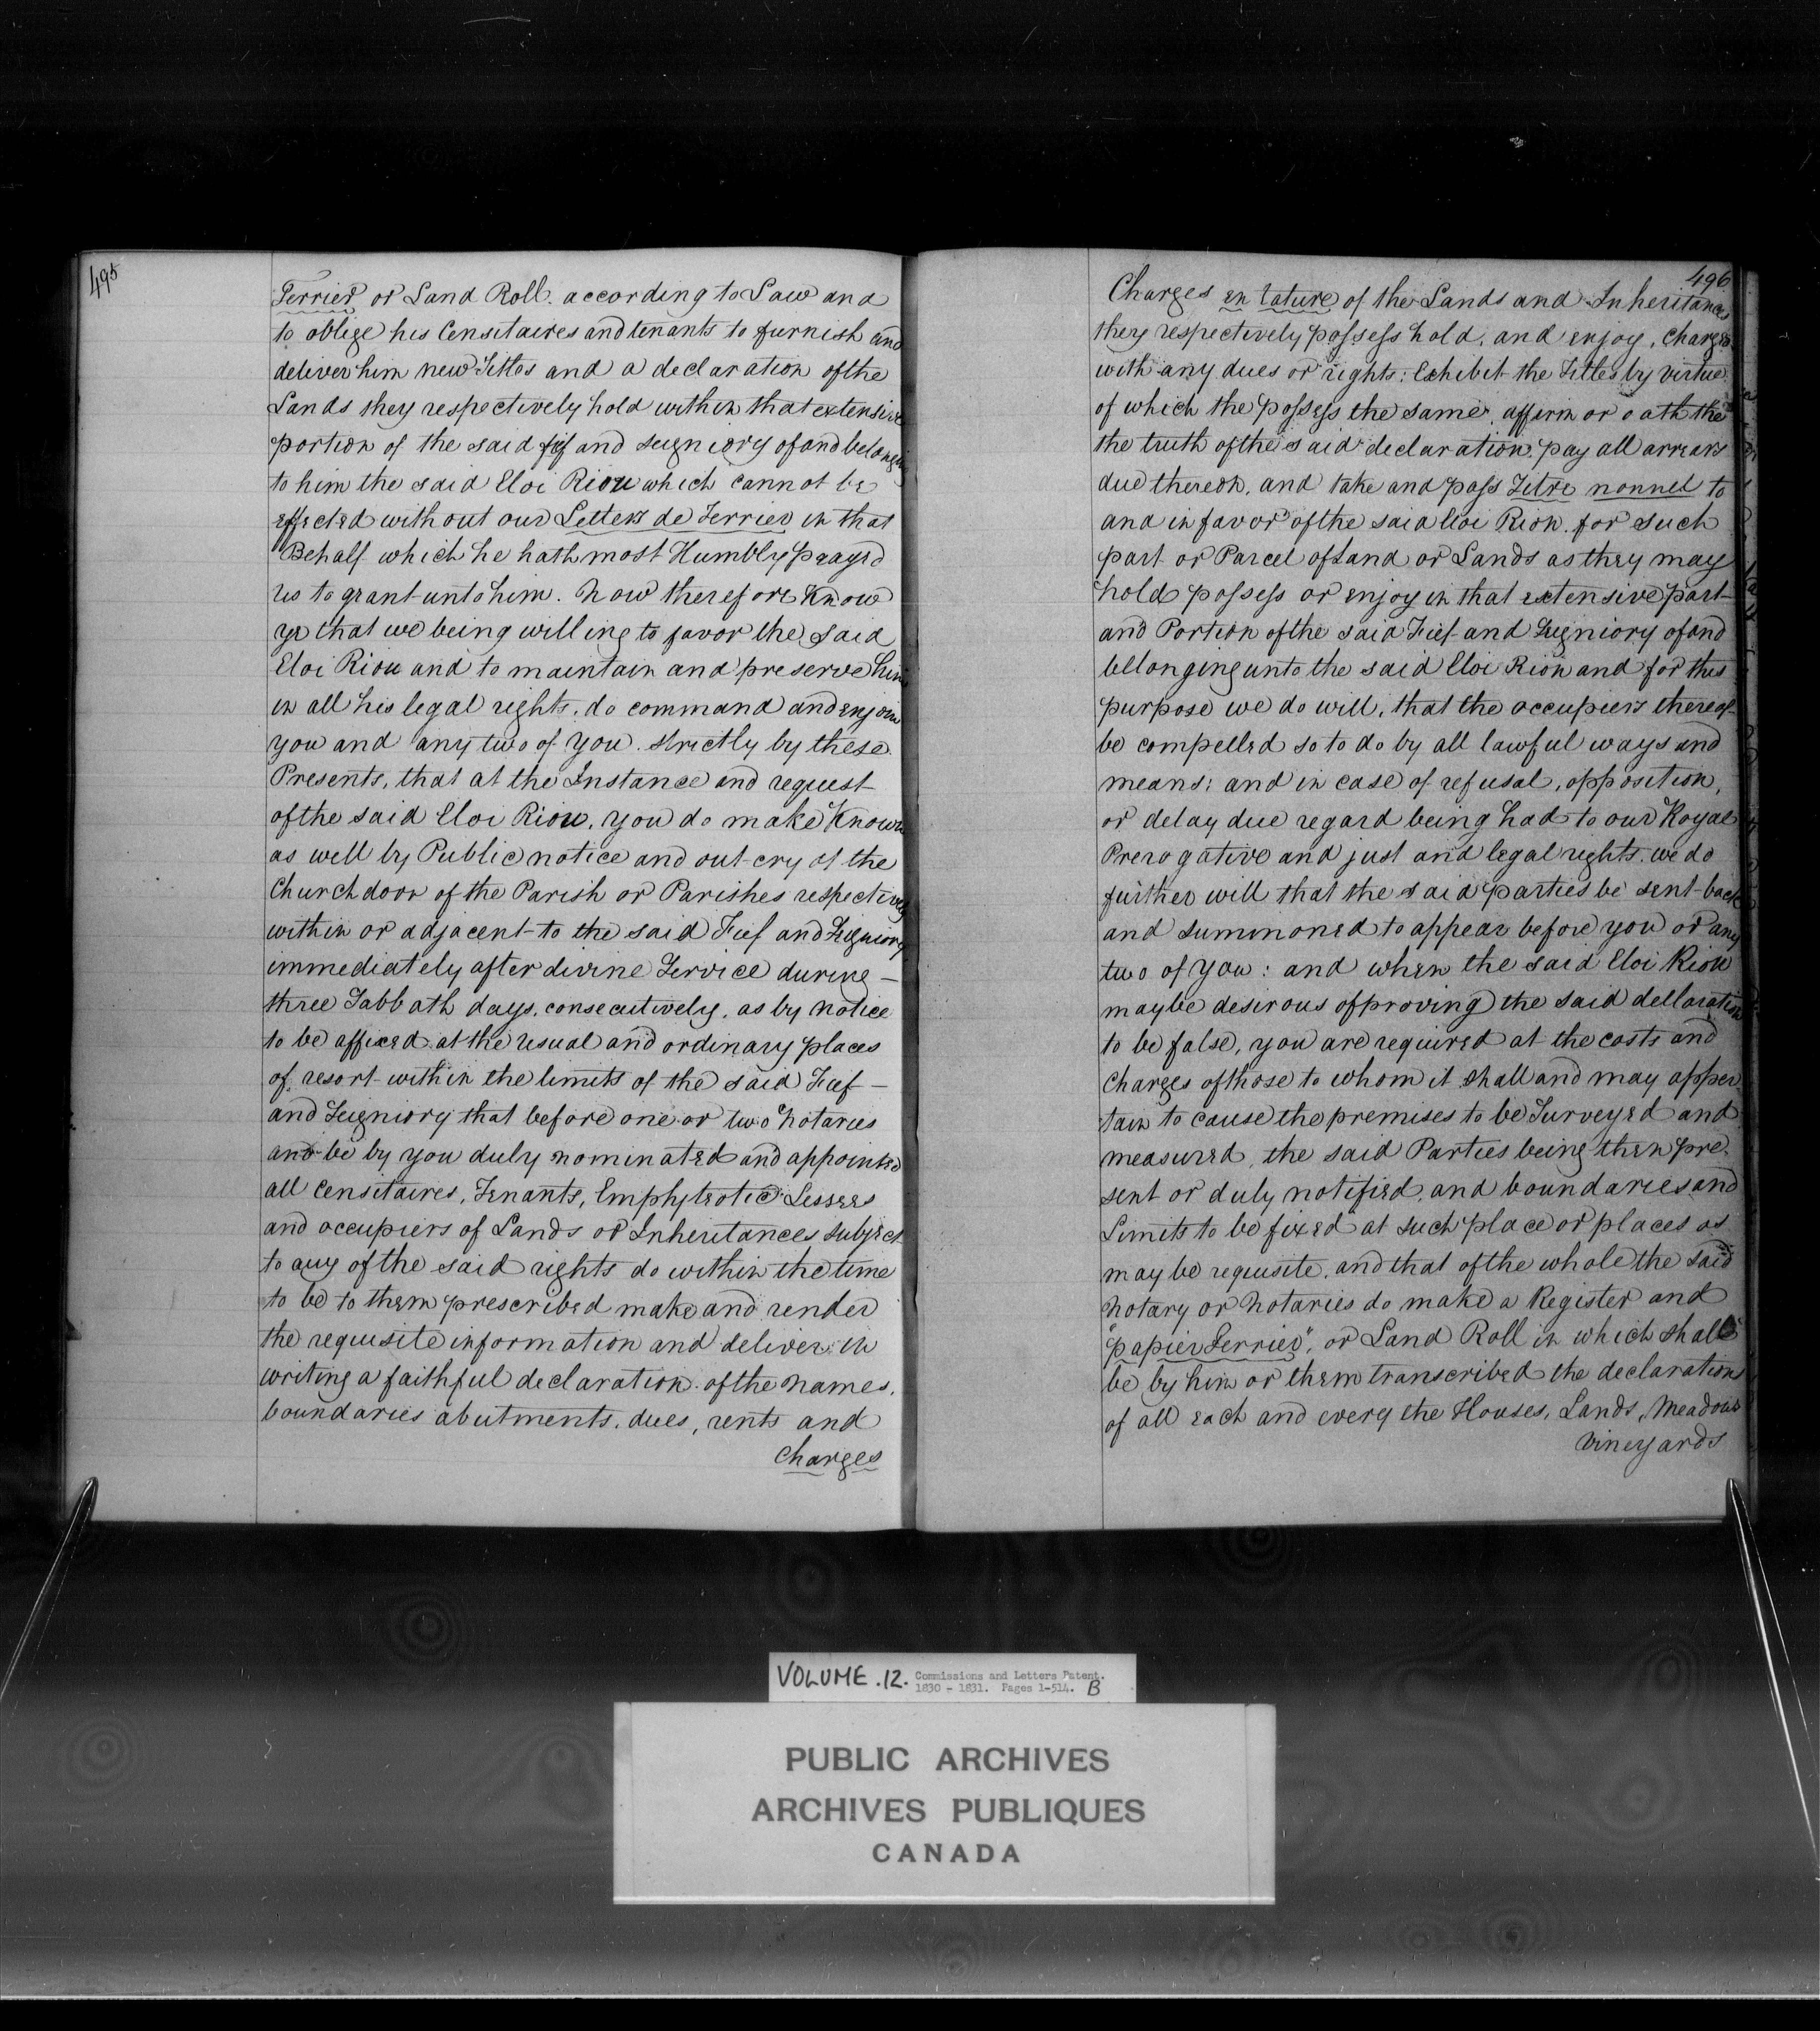 495
Terrier or Land Roll. according to Law and
to oblige his Censitaires and tenants to furnish and
deliver him new Titles and a declaration of the
Lands they respectively hold within that extensive
portion of the said fief and seigniory of and belonging
to him the said Eloi Riou which cannot be
effected without our Letters de Terrier in that
Behalf which he hath most Humbly prayed
us to grant unto him. Now therefore Know
ye that we being willing to favor the said
Eloi Riou and to maintain and preserve him
in all his legal rights, do command and enjoin
you and any two of you. strictly by these
Presents, that at the Instance and request
of the said Eloi Riou, you do make Known
as well by Public notice and out-cry at the
Church door of the Parish or Parishes respectively
within or adjacent to the said Fief and Seigniory
immediately after divine Service during –
three Sabbath days, consecutively, as by notice
to be affixed at the usual and ordinary places
of resort within the limits of the said Fief –
and Seigniory that before one or two Notaries
and be by you duly nominated and appointed
all Censitaires, Tenants, Emphyteotic Lessees
and occupiers of Lands or Inheritances subject
to any of the said rights do within the time
to be to them prescribed make and render
the requisite information and deliver in
writing a faithful declaration of the names,
boundaries abutments, dues, rents and
Charges
496
Charges en rature of the Lands and Inheritances
they respectively possess hold, and enjoy, charged
with any dues or rights: Exhibit the Titles by virtue
of which the possess the same, affirm or oath the
the truth of the said declaration, pay all arrears
due thereon, and take and pass Titre nonnel to
and in favor of the said Eloi Riou. for such
part or Parcel of Land or Lands as they may
hold possess or enjoy in that extensive part
and Portion of the said Fief and Seigniory of and
bellonging unto the said Eloi Riou and for this
purpose we do will, that the occupiers thereof
be compelled so to do by all lawful ways and
means; and in case of refusal, opposition,
or delay due regard being had to our Royal
Prerogative and just and legal rights. we do
further will that the said parties be sent back
and summoned to appear before you or any
two of you: and when the said Eloi Riou
may be desirous of proving the said dellaration
to be false, you are required at the costs and
Charges of those to whom it shall and may apper
tain to cause the premises to be Surveyed and
measured, the said Parties being then pre-
sent or duly notified, and boundaries and
Limits to be fixed at such place or places as
may be requisite, and that of the whole the said
notary or Notaries do make a Register and
"papier Terrier", or Land Roll in which shall
be by him or them transcribed the declarations
of all each and every the Houses, Lands, Meadows
Vineyards
VOLUME .12. Commissions and Letters Patent.
1830 - 1831. Pages 1-514. B
PUBLIC ARCHIVES
ARCHIVES PUBLIQUES
CANADA